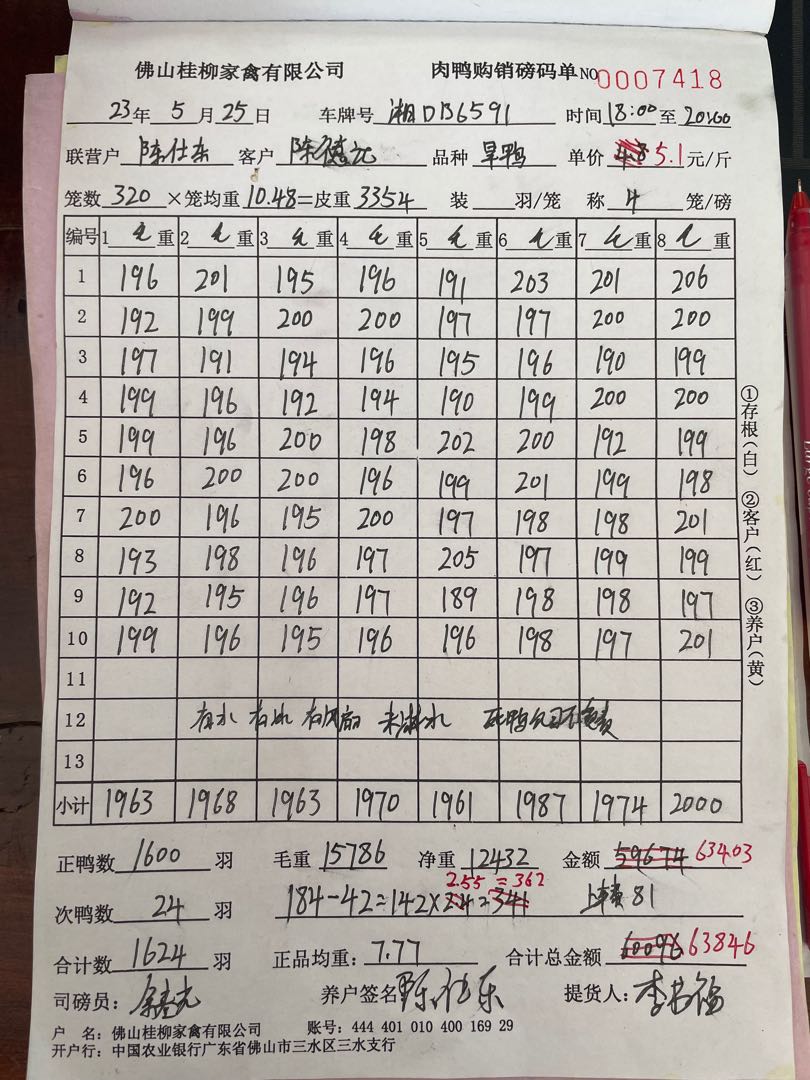 佛山桂柳家禽有限公司 肉鸭购销磅码单 NO 0007418
23年 5月25日 车牌号 湘DB6591 时间18:00至20:00
联营户 陈仕东 客户 陈德元 品种 旱鸭 单价 4.8 5.1元/斤
笼数 320 ×笼均重10.48=皮重3354 装 羽/笼 称 4 笼/磅
编号 1 毛 重 2 毛 重 3 毛 重 4 毛 重 5 毛 重 6 毛 重 7 毛 重 8 毛 重
1 196 201 195 196 191 203 201 206
2 192 199 200 200 197 197 200 200
3 197 191 194 196 195 196 190 199
4 199 196 192 194 190 199 200 200
5 199 196 200 198 202 200 192 199
6 196 200 200 196 199 201 199 198
7 200 196 195 200 197 198 198 201
8 193 198 196 197 205 197 199 199
9 192 195 196 197 189 198 198 197
10 199 196 195 196 196 198 197 201
11
12 有水 有冰 有风扇 未淋水 死鸭公司不负责
13
小计 1963 1968 1963 1970 1961 1987 1974 2000
①存根(白) ②客户(红) ③养户(黄)
正鸭数 1600 羽 毛重 15786 净重 12432 金额 59674 63403
2.55 =362
次鸭数 24 羽 184-42=142×2.4=341 上车费81
合计数 1624 羽 正品均重: 7.77 合计总金额 60096 63846
司磅员: 养户签名 陈仕东 提货人: 李书福
户 名: 佛山桂柳家禽有限公司 账号: 444 401 010 400 169 29
开户行: 中国农业银行广东省佛山市三水区三水支行